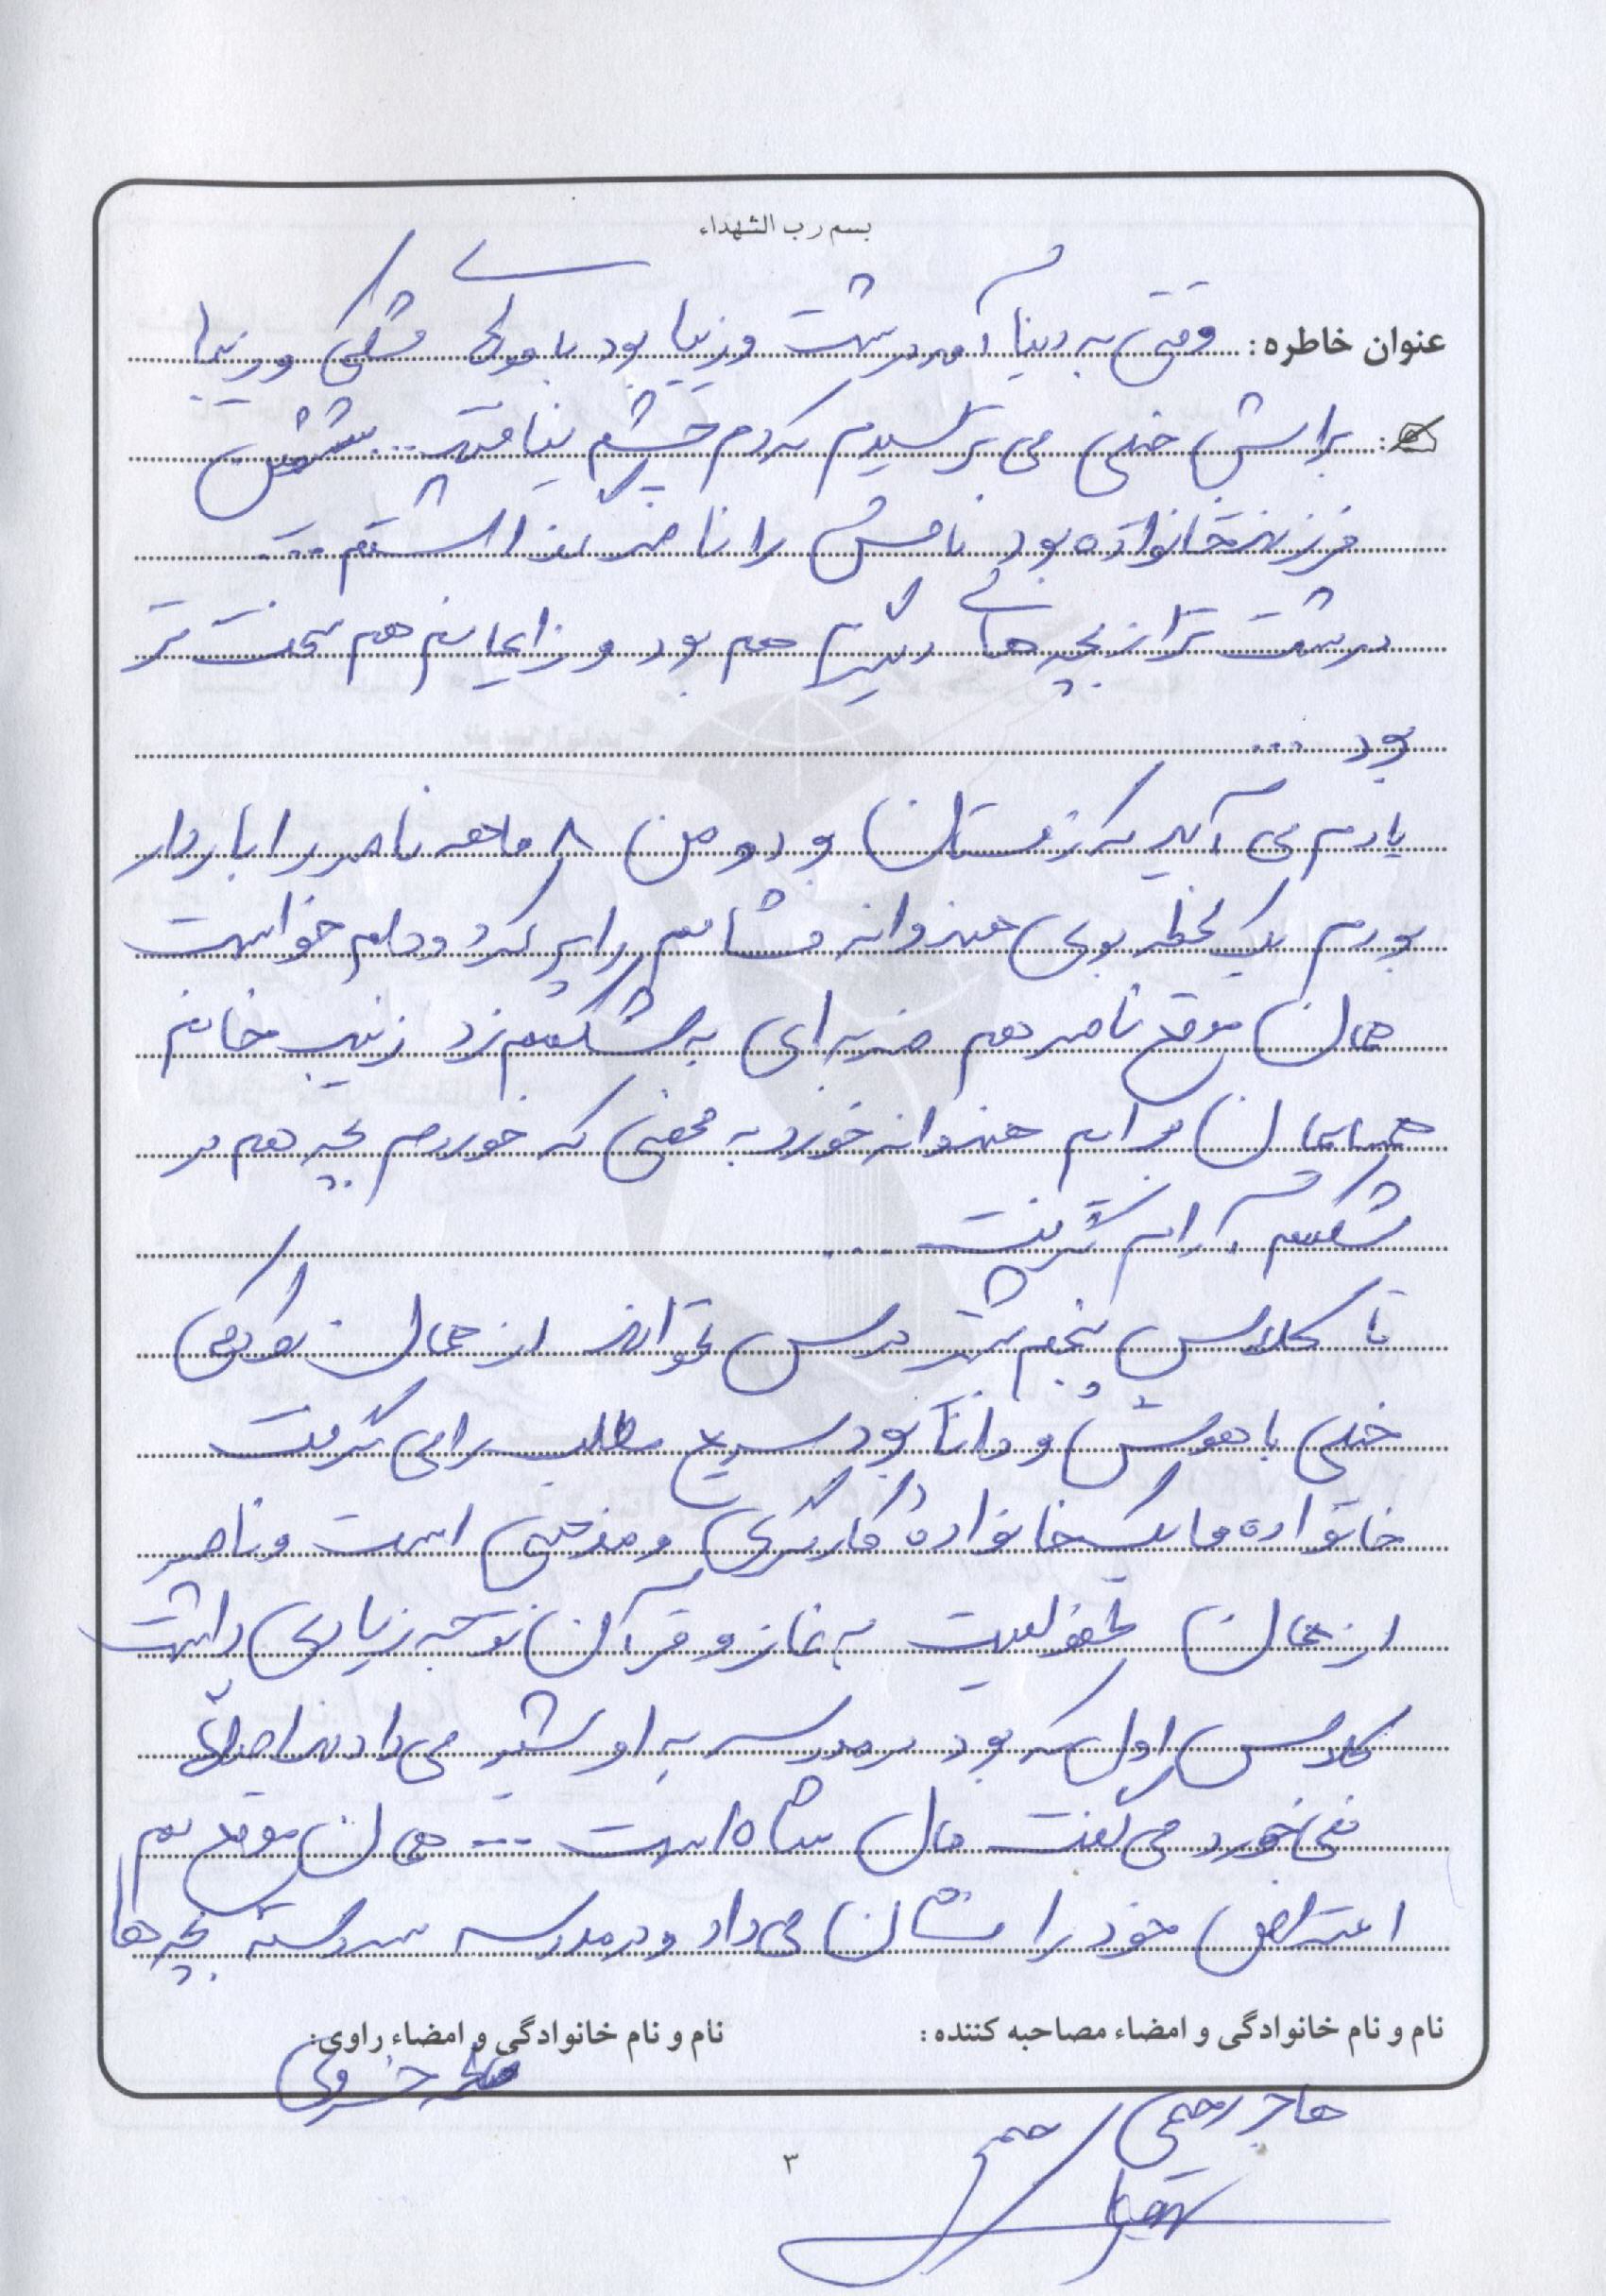 بسم رب الشهداء
عنوان خاطره: وقتی به دنیا آمد درشت و زیبا بود با موهای مشکی و زیبا
برایش خیلی می ترسیدم که دم چشم نیافتد... ششمین
فرزند خانواده بود نامش را ناصر گذاشتم...
درشت تر از بچه های دیگرم هم بود و زایمانم هم سخت تر
بود ...
یادم می آید که زمستان بود و من ۸ ماهه ناصر را باردار
بودم یک لحظه بوی هندوانه مشامم را پر کرد و دلم خواست
همان موقع ناصر هم ضربه ای به شکمم زد زینب خانم
همسایمان برایم هندوانه آورد به محضی که خوردم بچه هم در
شکمم آرام گرفت ...
تا کلاس پنجم بیشتر درس نخواند از همان کودکی
خیلی با هوش و دانا بود سریع مطلب را می گرفت
خانواده ما یک خانوادهٔ کارگری و مذهبی است و ناصر
از همان طفولیت به نماز و قرآن توجه زیادی داشت
کلاس اول که بود در مدرسه به او شیر می دادند اصلاً
نمی خورد می گفت مال شاه است ... همان موقع هم
اعتراض خود را نشان می داد و در مدرسه سردسته بچه ها
نام و نام خانوادگی و امضاء مصاحبه کننده: نام و نام خانوادگی و امضاء راوی:
خسروی
هاجر رحیمی
۳